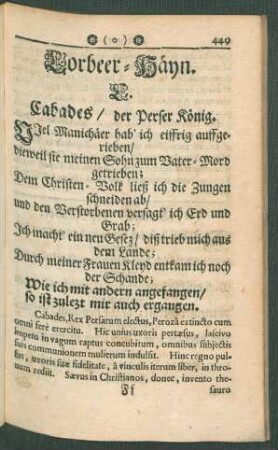 ( o ) 449
Lorbeer-Häyn.
L.
Cabades / der Perser König.
VIel Manichäer hab' ich eiffrig auffge-
rieben /
dieweil sie meinen Sohn zum Vater-Mord
getrieben;
Dem Christen-Volk ließ ich die Zungen
schneiden ab /
und den Verstorbenen versagt' ich Erd und
Grab;
Ich macht' ein neu Gesez / diß trieb mich aus
dem Lande;
Durch meiner Frauen Kleyd entkam ich noch
der Schande;
Wie ich mit andern angefangen /
so ist zulezt mir auch ergangen.
Cabades, Rex Persarum electus, Perozà extincto cum
omni ferè exercitu. Hic unius uxoris pertæsus, lascivo
impetu in vagum raptus concubitum, omnibus subjectis
suis communionem mulierum indulsit. Hinc regno pul-
sus, uxoris suæ fidelitate, à vinculis iterum liber, in thro-
num rediit. Sævus in Christianos, donec, invento the-
Ff sauro